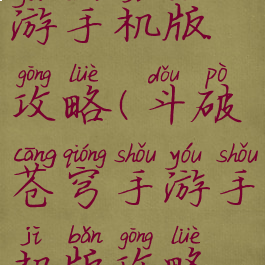 游手机版
gōng lüè dǒu pò
攻略(斗破
cāng qióng shǒu yóu shǒu
苍穹手游手
jī bǎn gōng lüè
机版攻略